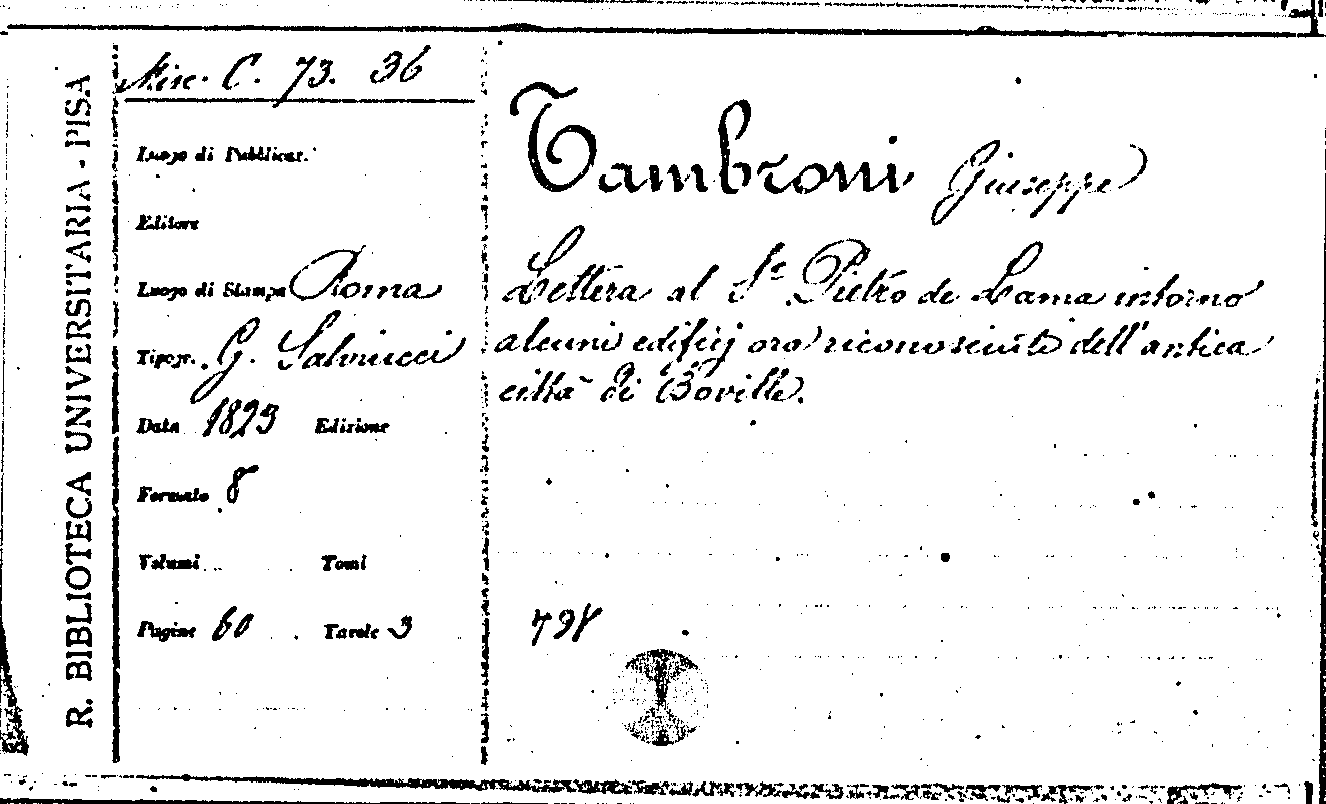 R. BIBLIOTECA UNIVERSITARIA - PISA
Misc. C. 73. 36
Luogo di Pubblicaz.
Editore
Luogo di Stampa Roma
Tipogr. G. Salviucci
Data 1823 Edizione
Formato 8
Volumi Tomi
Pagine 60 Tavole 3
Tambroni Giuseppe
Lettera al Sr Pietro de Lama intorno
alcuni edifizj ora riconosciuti dell'antica
città di Boville.
798